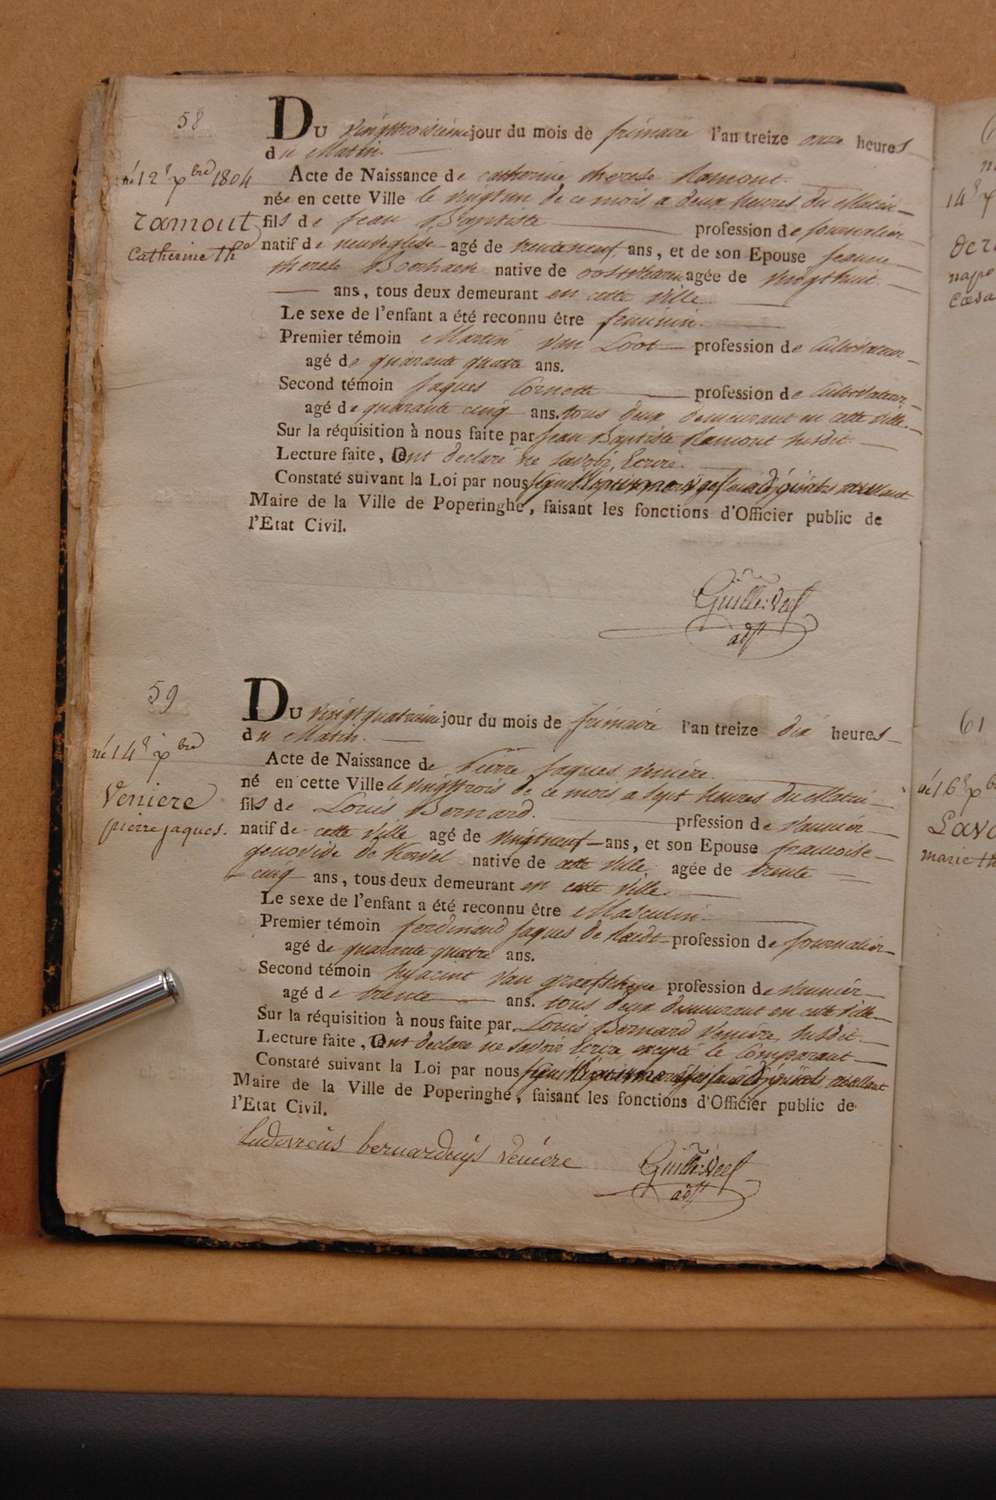 58
Du vingttroisieme jour du mois de frimaire l'an treize onze heures
du Matin.
né 12 xbre 1804
Acte de Naissance de catherine therese Ramout
née en cette Ville le vingtun de ce mois a deux heures du Matin
Ramout
Catherine the
fils de Jean Baptiste profession de journalier
natif de neuveglise agé de trenteneuf ans, et de son Epouse jeanne
therese native de agée de vingthuit
ans, tous deux demeurant en cette ville
Le sexe de l'enfant a été reconnu être feminin.
Premier témoin Martin Van Loot profession de Cultivateur
agé de quarante quatre ans.
Second témoin Jaques Cornette profession de Cultivateur
agé de quarante cinq ans. tous deux demeurant en cette ville.
Sur la réquisition à nous faite par Jean Baptiste Ramout susdit
Lecture faite, Ont declaré ne savoir Ecrire.
Constaté suivant la Loi par nous
Maire de la Ville de Poperinghe, faisant les fonctions d'Officier public de
l'Etat Civil.
59
Du vingtquatrieme jour du mois de frimaire l'an treize dix heures
du Matin.
né 14 xbre
Acte de Naissance de Pierre Jaques Veniere
né en cette Ville le vingttrois de ce mois a sept heures du Matin
Veniere
pierre jaques.
fils de Louis Bernard. prfession de vannier
natif de cette ville agé de vingtneuf ans, et son Epouse francoise
genovive de native de cette ville, agée de trente
cinq ans, tous deux demeurant en cette ville.
Le sexe de l'enfant a été reconnu être Masculin.
Premier témoin ferdinand Jaques de profession de journalier
agé de quarante quatre ans.
Second témoin hyacint Van profession de vannier
agé de trente ans. tous deux demeurant en cette ville
Sur la réquisition à nous faite par Louis Bernard Veniere susdit
Lecture faite, Ont declaré ne savoir Ecrire excepté le comparant
Constaté suivant la Loi par nous
Maire de la Ville de Poperinghe, faisant les fonctions d'Officier public de
l'Etat Civil.
Ludovicus bernardus Veniere
61
né 16 xb
marie th